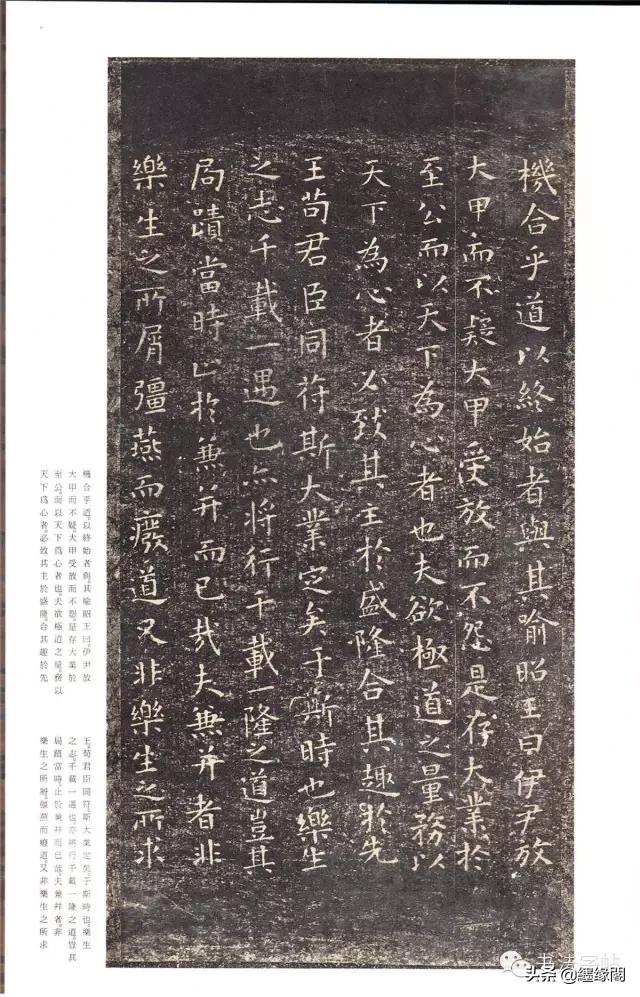 機合乎道以終始者與其喻昭王曰伊尹放
大甲而不疑大甲受放而不怨是存大業於
至公而以天下為心者也夫欲極道之量務以
天下為心者必致其主於盛隆合其趣於先
王苟君臣同符斯大業定矣于斯時也樂生
之志千載一遇也亦將行千載一隆之道豈其
局蹟當時止於兼并而已哉夫兼并者非
樂生之所屑彊燕而廢道又非樂生之所求
機合乎道。以終始者與。其喻昭王曰。伊尹放
大甲而不疑。大甲受放而不怨。是存大業於
至公。而以天下爲心者也。夫欲極道之量。務以
天下爲心者。必致其主於盛隆。合其趣於先
王。苟君臣同符。斯大業定矣。于斯時也。樂生
之志。千載一遇也。亦將行千載一隆之道。豈其
局蹟當時。止於兼并而已哉。夫兼并者。非
樂生之所屑。彊燕而廢道。又非樂生之所求
书法字帖
头条@纆缘閣